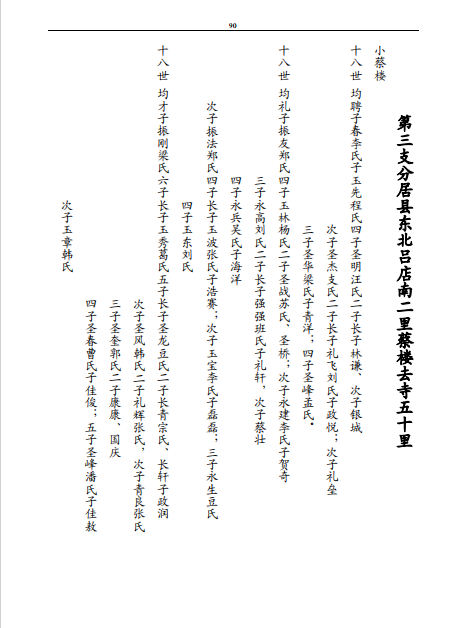 90
第三支分居县东北吕店南二里蔡楼去寺五十里
小蔡楼
十八世 均聘子春李氏子玉先程氏四子圣明汪氏二子长子林谦、次子银城
次子圣杰支氏二子长子礼飞刘氏子政悦；次子礼垒
三子圣华梁氏子青洋；四子圣峰孟氏。
十八世 均礼子振友郑氏四子玉林杨氏二子圣战苏氏、圣桥；次子永建李氏子贺奇
三子永高刘氏二子长子强强班氏子礼轩，次子蔡壮
四子永兵吴氏子海洋
次子振法郑氏四子长子玉波张氏子浩赛；次子玉宝李氏子磊磊；三子永生豆氏
四子玉东刘氏
十八世 均才子振刚梁氏六子长子玉秀葛氏五子长子圣龙豆氏二子长青宗氏、长轩子政润
次子圣风韩氏二子礼辉张氏，次子青良张氏
三子圣奎郭氏二子康康、国庆
四子圣春曹氏子佳俊；五子圣峰潘氏子佳敖
次子玉章韩氏